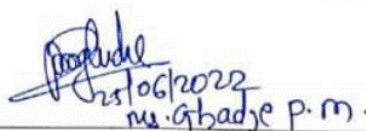 25/06/2022
Ms. Ghadje p. m.